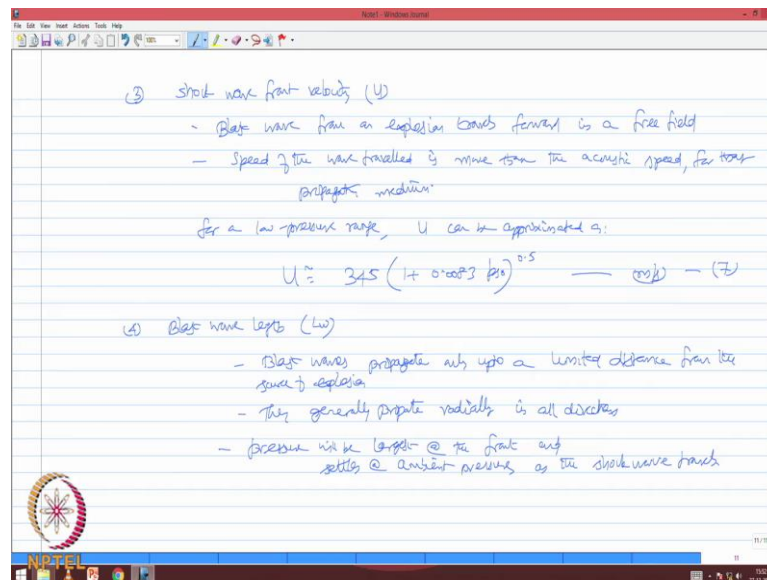 Note1 - Windows Journal
File Edit View Insert Actions Tools Help
100%
③ Shock wave front velocity (U)
- Blast wave from an explosion travels forward in a free field
- Speed of the wave travelled is more than the acoustic speed, for that
propagate medium.
for a low-pressure range, U can be approximated as:
U ≅ 345 (1 + 0.0083 pso)^0.5 — (m/s) - (7)
④ Blast wave length (Lw)
- Blast waves propagate only upto a limited distance from the
source of explosion
- They generally propate radially in all directions
- pressure will be largest @ the front and
settles @ ambient pressures as the shock wave travels
NPTEL
11/11
11